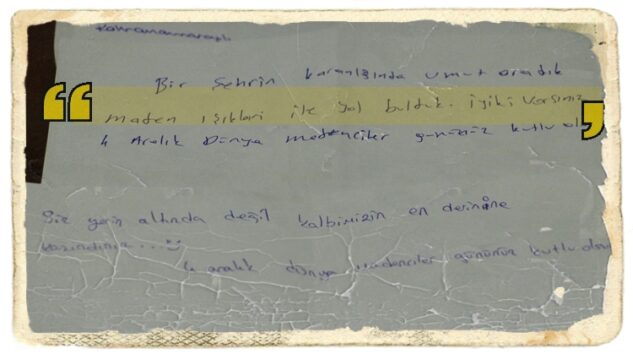 Kahramanmaraşlı
Bir Şehrin karanlığında umut aradık
maden ışıkları ile yol bulduk. iyiki varsınız
4 Aralık Dünya madenciler gününüz kutlu ol
Siz yerin altında değil kalbimizin en derinine
kazındınız...
4 aralık dünya madenciler gününün kutlu olsun